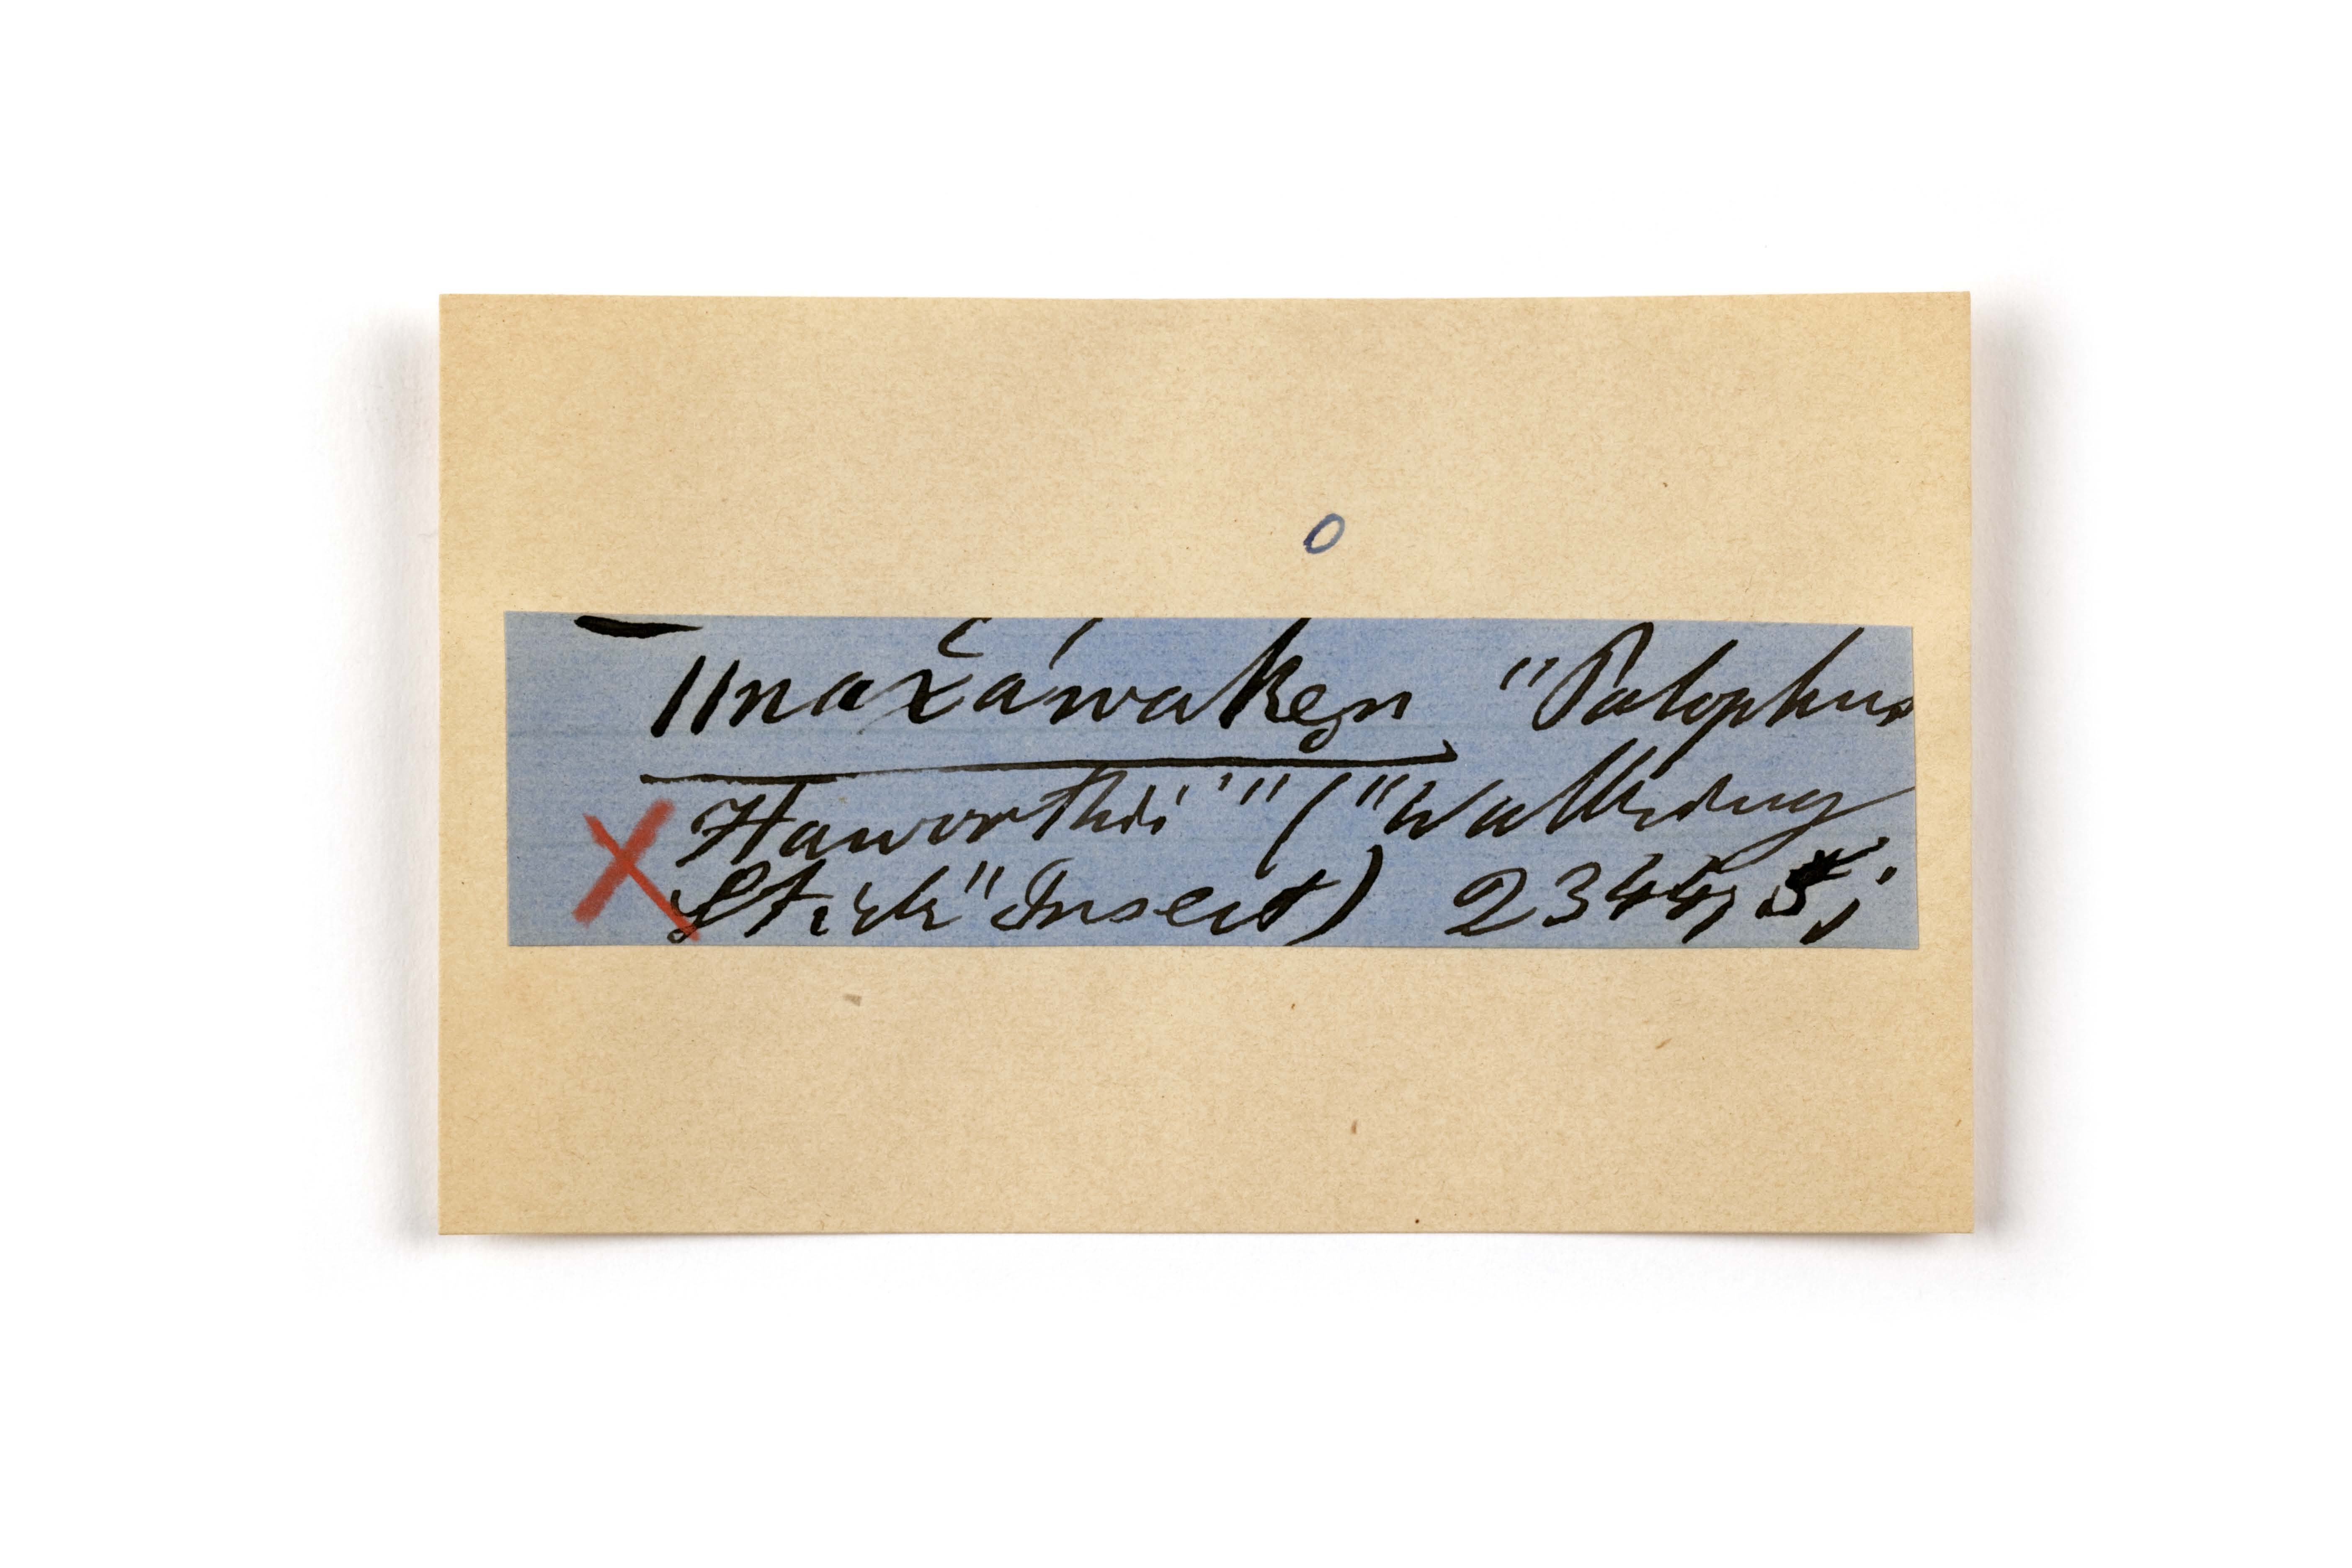 o
ǁnaẋáwaken "Palophus
Haworthii'" ("Walking
Stick" Insect) 2344, 5;